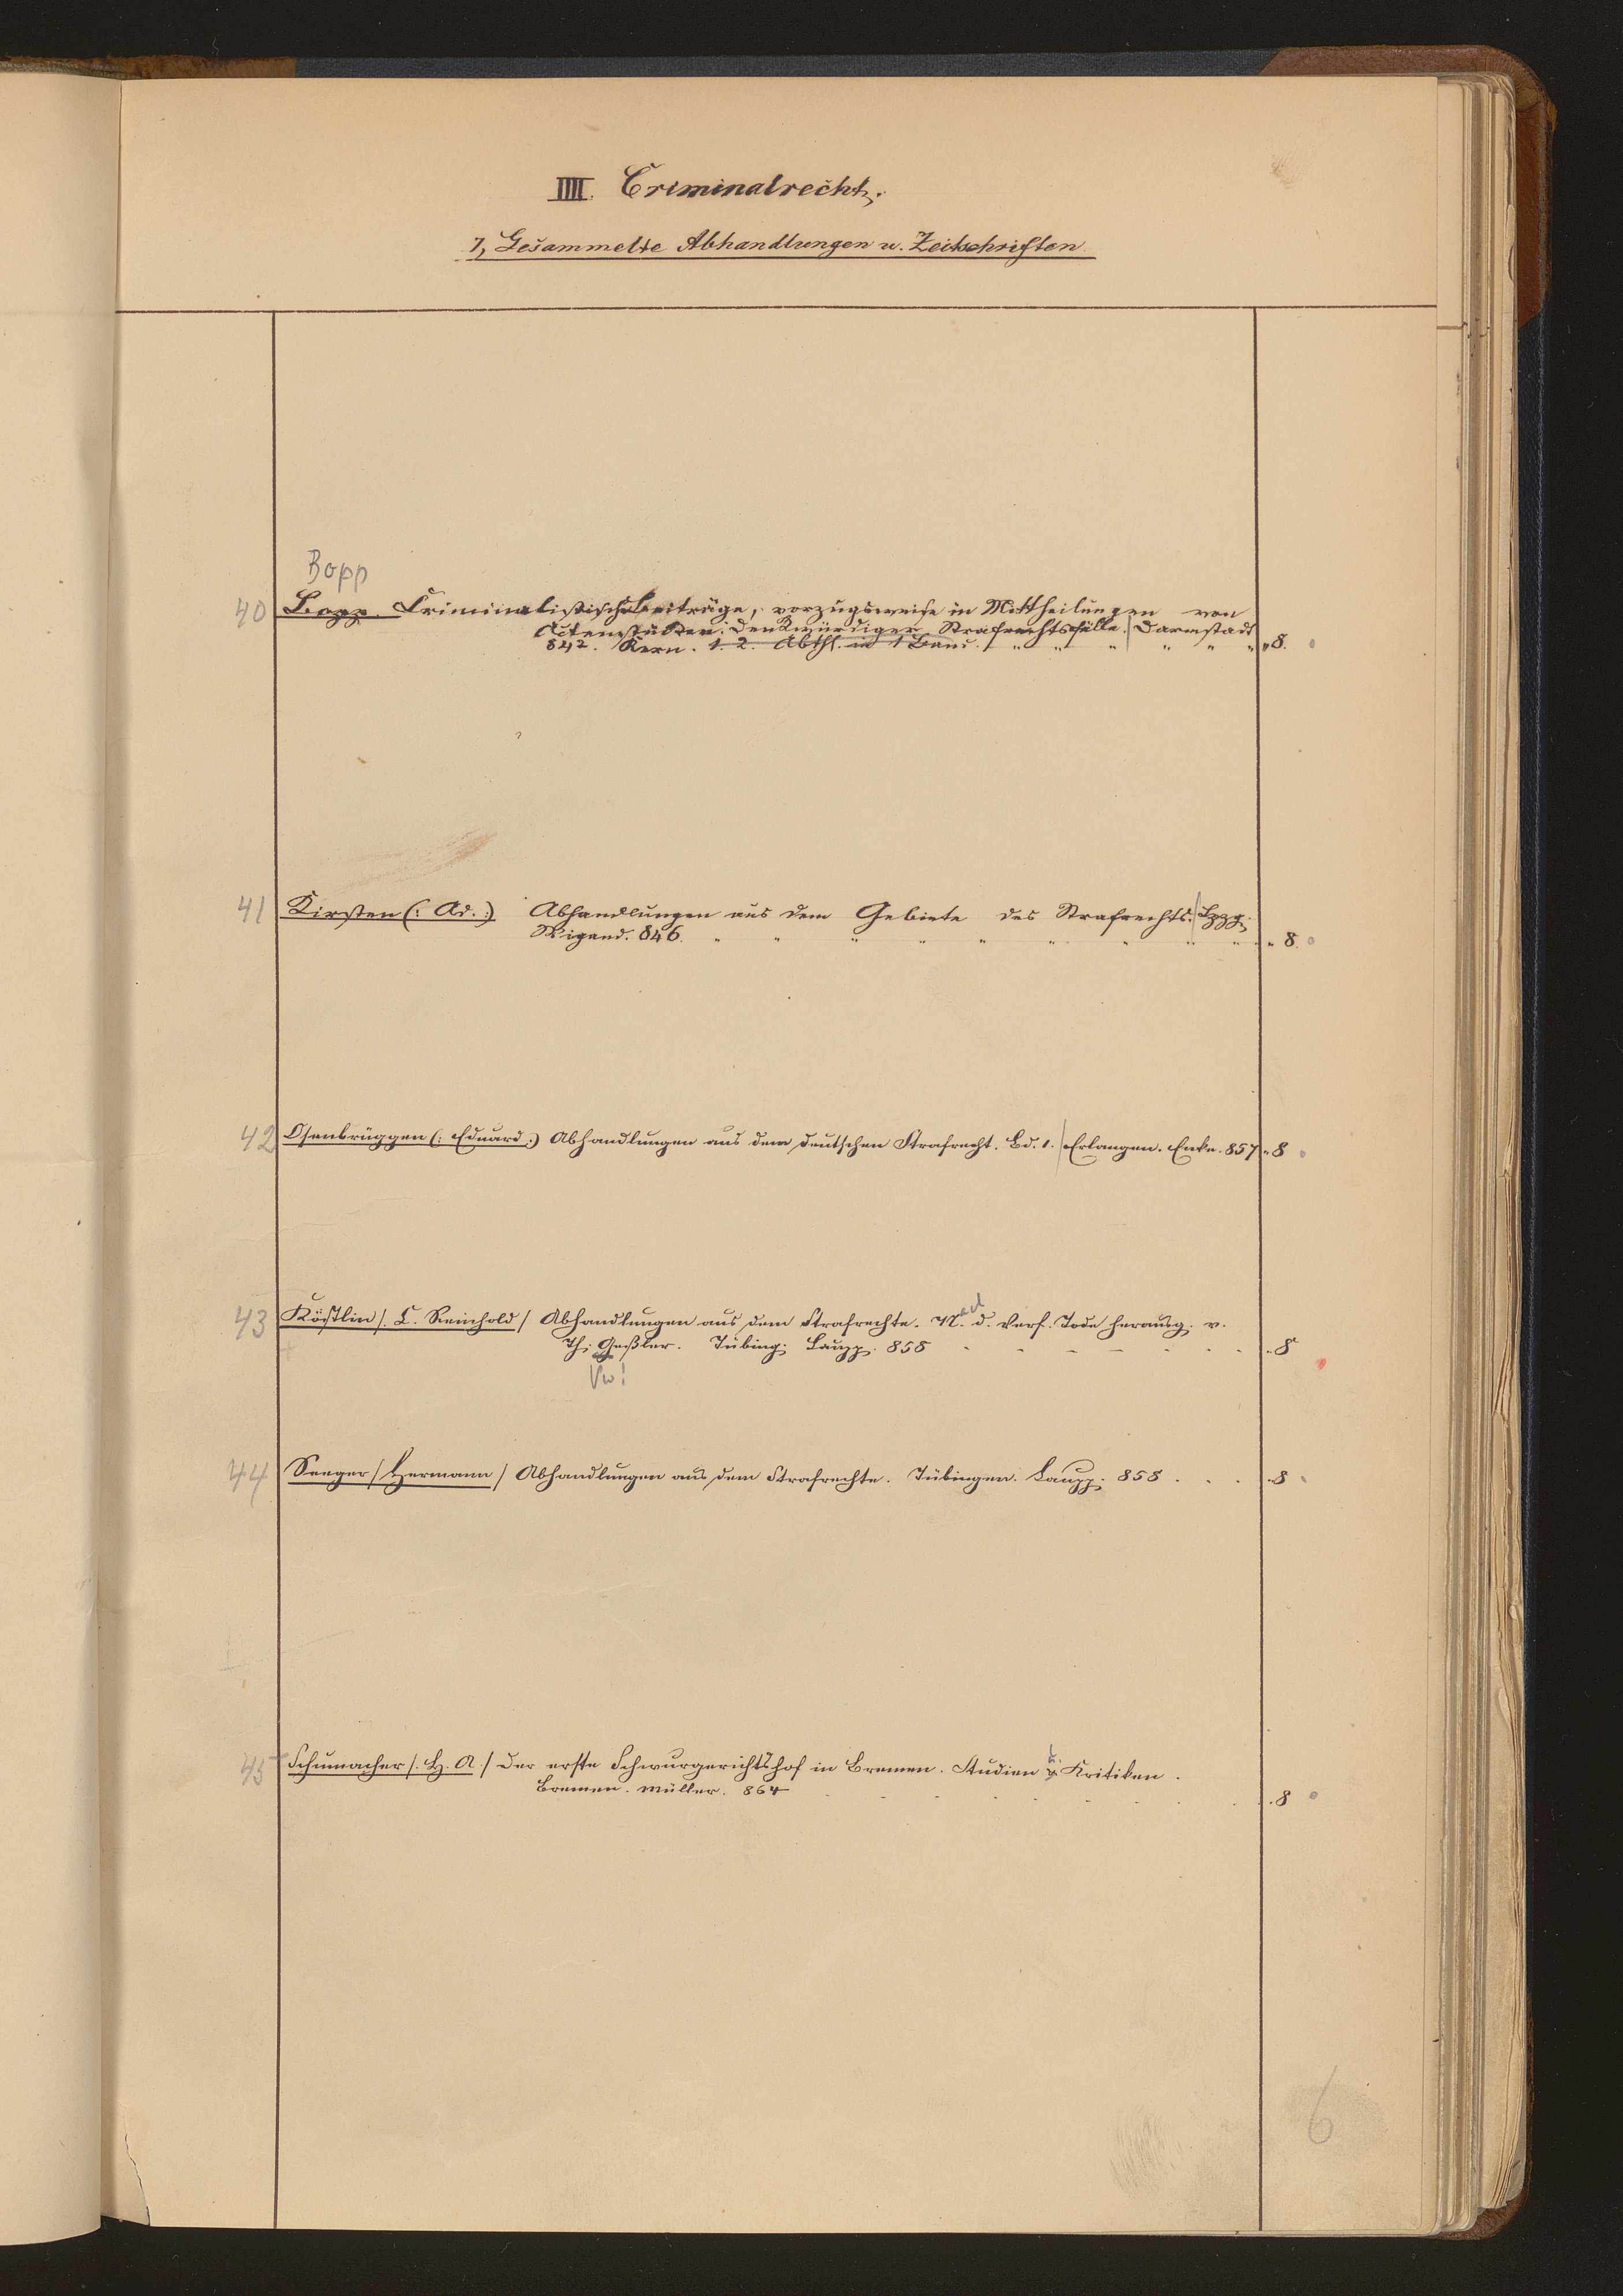 IIII. Criminalrecht.
7, Gesammelte Abhandlungen u. Zeitschriften
Bopp
40 Bopp. Criminalistische Beiträge, vorzugsweise in Mittheilungen von
Actenstücken denkwürdiger Strafrechtsfälle. Darmstadt
842. Kern. 1. 2. Abth. in 1 Band. " " " " " " " 8.
41 Kirsten (: Ad. :) Abhandlungen aus dem Gebiete des Strafrechts. Lpzg.
Wigand. 846. " " " " " " " " " " 8.
42 Osenbrüggen (: Eduard :) Abhandlungen aus dem deutschen Strafrecht. Bd. 1. Erlangen. Enke. 857 " 8
43 Köstlin /. C. Reinhold / Abhandlungen aus dem Strafrechte. Nach d. Verf. Tode herausg. v.
Th. Geßler. Tübing. Laupp. 858 - - - - - - - 8
Vw!
44 Seeger / Hermann / Abhandlungen aus dem Strafrechte. Tübingen. Laupp. 858 . . . . 8
45 Schumacher /. H. A / Der erste Schwurgerichtshof in Bremen. Studien u. Kritiken.
Bremen. Müller. 864 . . . . . . . . . 8
6